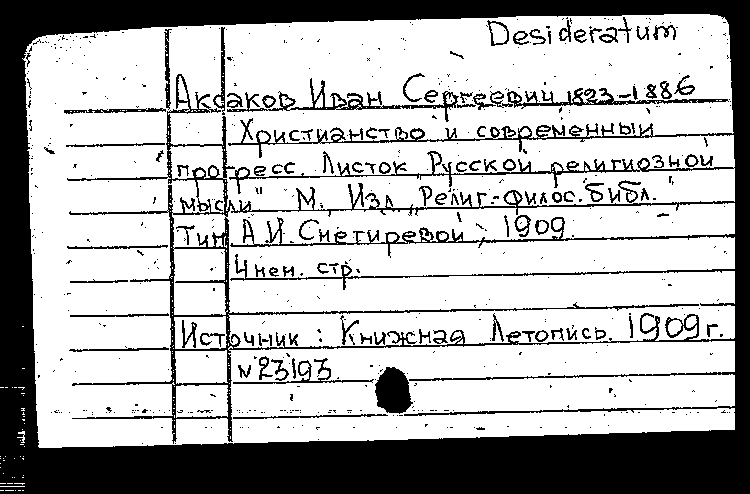 Desideratum
Аксаков Иван Сергеевич 1823-1886
Христианство и современный
прогресс. Листок „Русской религиозной
мысли" М., Изд „Религ.-филос. библ."
Тип А.И. Снегиревой, 1909.
4 нен. стр.
Источник: Книжная Летопись. 1909 г.
N 23193